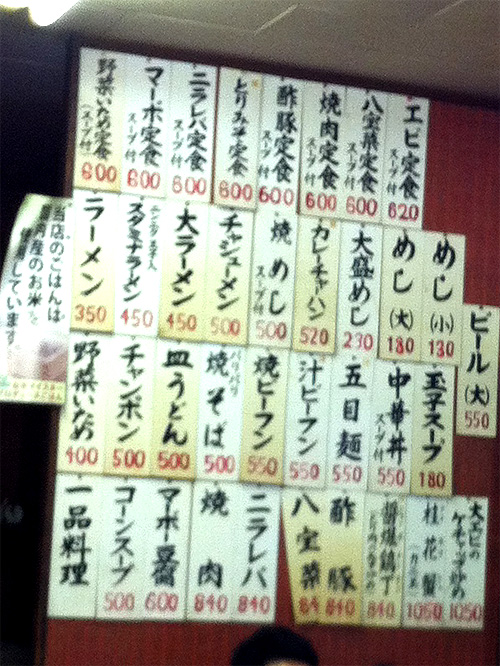 エビ定食 スープ付 620
八宝菜定食 スープ付 600
焼肉定食 スープ付 600
酢豚定食 スープ付 600
とりみそ定食 600
ニラレバ定食 スープ付 600
マーボ定食 スープ付 600
野菜いため定食 (スープ付 600
めし(小) 130
めし(大) 180
大盛めし 230
カレーチャハン 520
焼めし スープ付 500
チャシューメン 500
大ラーメン 450
スタミナラーメン 450
ラーメン 350
当店のごはんは
産のお米を
しています
ビール(大) 550
玉子スープ 180
中華丼 スープ付 550
五目麺 550
汁ビーフン 550
焼ビーフン 550
パリパリ 焼そば 500
皿うどん 500
チャンポン 500
野菜いため 400
大エビのケチャップ炒め 1050
桂花蟹 1050
840
酢豚 840
八宝菜 84
ニラレバ 840
焼肉 840
マーボー豆腐 600
コーンスープ 500
一品料理